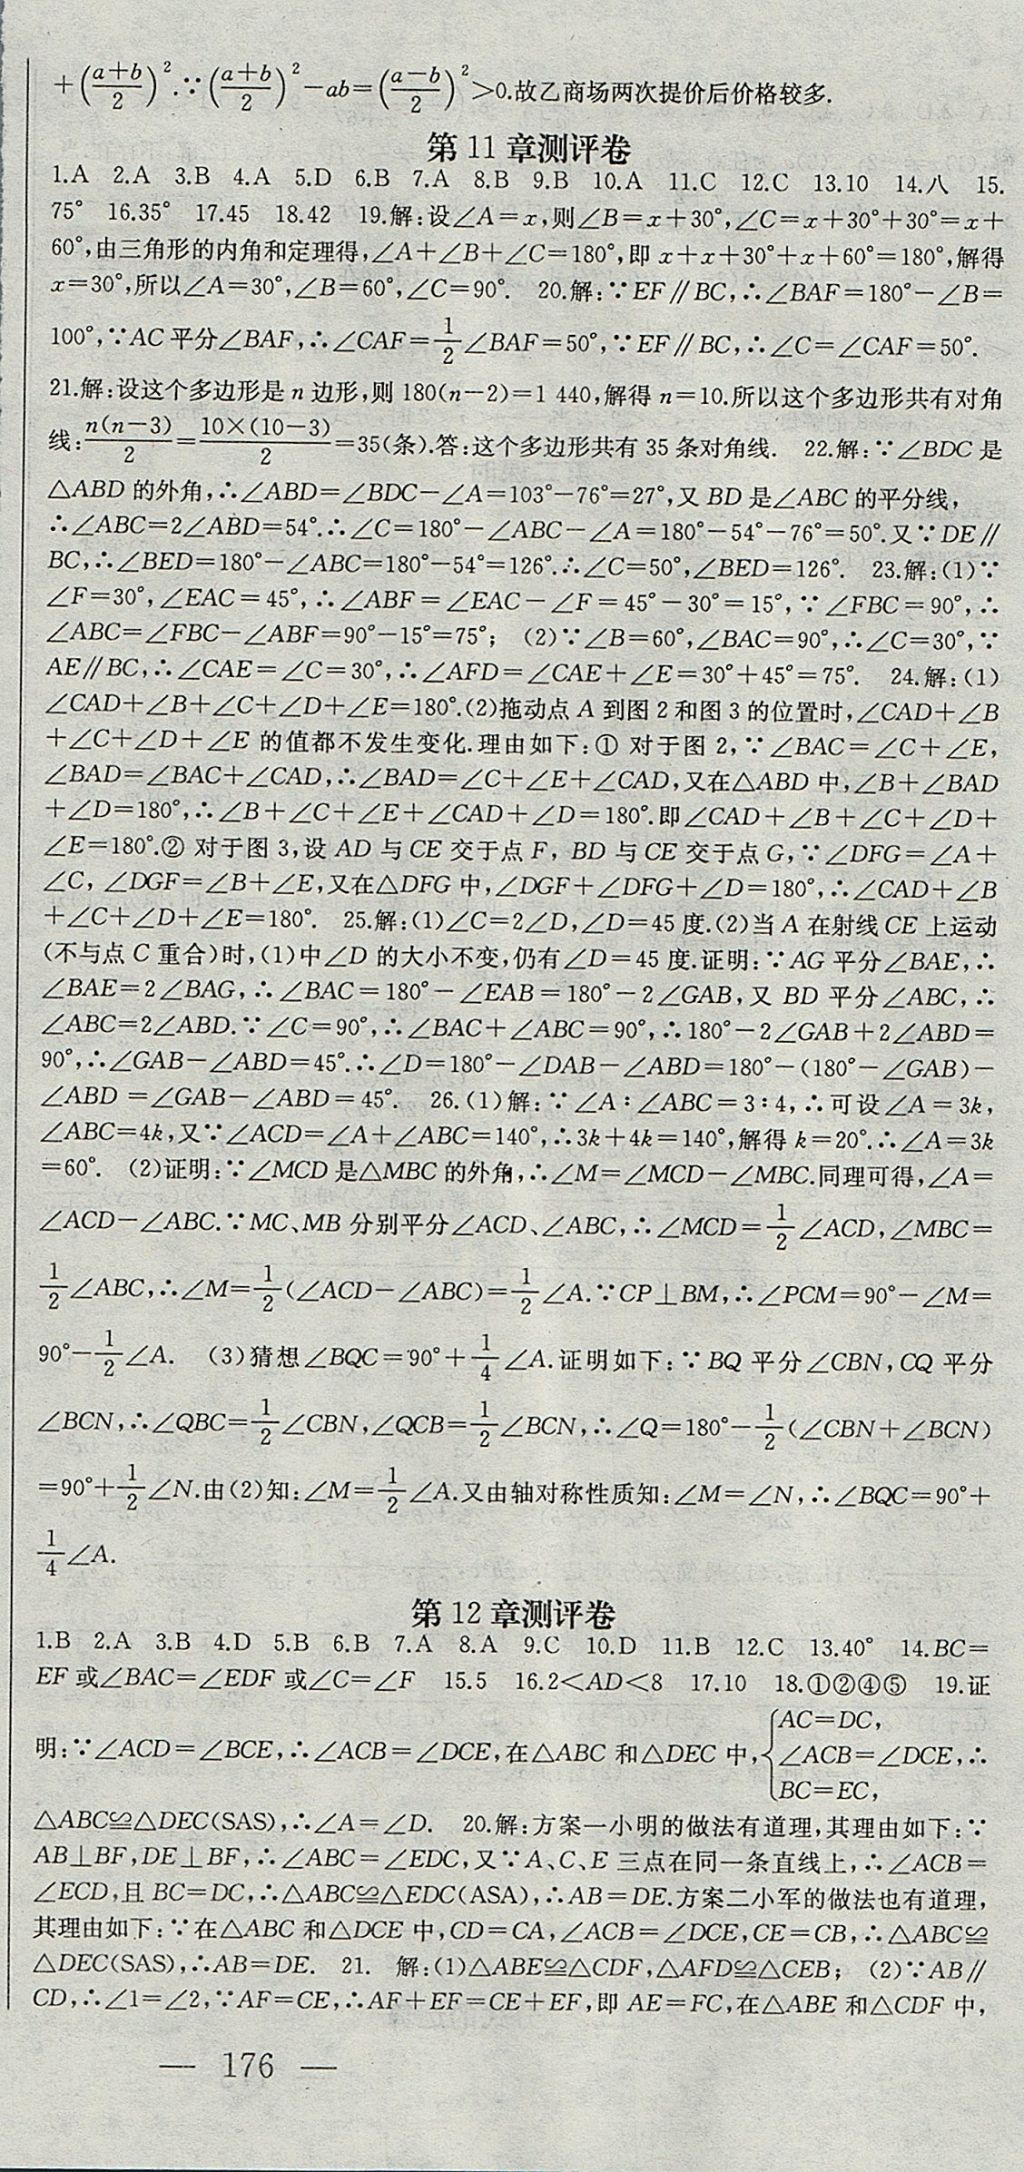 +(a+b/2)².∵(a+b/2)²−ab=(a−b/2)²>0.故乙商场两次提价后价格较多.
第 11 章测评卷
1.A 2.A 3.B 4.A 5.D 6.B 7.A 8.B 9.B 10.A 11.C 12.C 13.10 14.八 15.
75° 16.35° 17.45 18.42 19.解:设∠A=x,则∠B=x+30°,∠C=x+30°+30°=x+
60°,由三角形的内角和定理得,∠A+∠B+∠C=180°,即 x+x+30°+x+60°=180°,解得
x=30°,所以∠A=30°,∠B=60°,∠C=90°. 20.解:∵EF∥BC,∴∠BAF=180°−∠B=
100°,∵AC 平分∠BAF,∴∠CAF=1/2∠BAF=50°,∵EF∥BC,∴∠C=∠CAF=50°.
21.解:设这个多边形是 n 边形,则 180(n−2)=1 440,解得 n=10.所以这个多边形共有对角
线:n(n−3)/2=10×(10−3)/2=35(条).答:这个多边形共有 35 条对角线. 22.解:∵∠BDC 是
△ABD 的外角,∴∠ABD=∠BDC−∠A=103°−76°=27°,又 BD 是∠ABC 的平分线,
∴∠ABC=2∠ABD=54°.∴∠C=180°−∠ABC−∠A=180°−54°−76°=50°.又∵DE∥
BC,∴∠BED=180°−∠ABC=180°−54°=126°.∴∠C=50°,∠BED=126°. 23.解:(1)∵
∠F=30°,∠EAC=45°,∴∠ABF=∠EAC−∠F=45°−30°=15°,∵∠FBC=90°,∴
∠ABC=∠FBC−∠ABF=90°−15°=75°; (2)∵∠B=60°,∠BAC=90°,∴∠C=30°,∵
AE∥BC,∴∠CAE=∠C=30°,∴∠AFD=∠CAE+∠E=30°+45°=75°. 24.解:(1)
∠CAD+∠B+∠C+∠D+∠E=180°.(2)拖动点 A 到图 2 和图 3 的位置时,∠CAD+∠B
+∠C+∠D+∠E 的值都不发生变化.理由如下:① 对于图 2,∵∠BAC=∠C+∠E,
∠BAD=∠BAC+∠CAD,∴∠BAD=∠C+∠E+∠CAD,又在△ABD 中,∠B+∠BAD
+∠D=180°,∴∠B+∠C+∠E+∠CAD+∠D=180°.即∠CAD+∠B+∠C+∠D+
∠E=180°.② 对于图 3,设 AD 与 CE 交于点 F, BD 与 CE 交于点 G,∵∠DFG=∠A+
∠C, ∠DGF=∠B+∠E,又在△DFG 中,∠DGF+∠DFG+∠D=180°,∴∠CAD+∠B
+∠C+∠D+∠E=180°. 25.解:(1)∠C=2∠D,∠D=45 度.(2)当 A 在射线 CE 上运动
(不与点 C 重合)时,(1)中∠D 的大小不变,仍有∠D=45 度.证明:∵AG 平分∠BAE,∴
∠BAE=2∠BAG,∴∠BAC=180°−∠EAB=180°−2∠GAB,又 BD 平分∠ABC,∴
∠ABC=2∠ABD.∵∠C=90°,∴∠BAC+∠ABC=90°,∴180°−2∠GAB+2∠ABD=
90°,∴∠GAB−∠ABD=45°.∴∠D=180°−∠DAB−∠ABD=180°−(180°−∠GAB)−
∠ABD =∠GAB−∠ABD=45°. 26.(1)解:∵∠A∶∠ABC=3∶4,∴可设∠A=3k,
∠ABC=4k,又∵∠ACD=∠A+∠ABC=140°,∴3k+4k=140°,解得 k=20°.∴∠A=3k
=60°. (2)证明:∵∠MCD 是△MBC 的外角,∴∠M=∠MCD−∠MBC.同理可得,∠A=
∠ACD−∠ABC.∵MC、MB 分别平分∠ACD、∠ABC,∴∠MCD=1/2∠ACD,∠MBC=
1/2∠ABC,∴∠M=1/2(∠ACD−∠ABC)=1/2∠A.∵CP⊥BM,∴∠PCM=90°−∠M=
90°−1/2∠A. (3)猜想∠BQC=90°+1/4∠A.证明如下:∵BQ 平分∠CBN,CQ 平分
∠BCN,∴∠QBC=1/2∠CBN,∠QCB=1/2∠BCN,∴∠Q=180°−1/2(∠CBN+∠BCN)
=90°+1/2∠N.由(2)知:∠M=1/2∠A.又由轴对称性质知:∠M=∠N,∴∠BQC=90°+
1/4∠A.
第 12 章测评卷
1.B 2.A 3.B 4.D 5.B 6.B 7.A 8.A 9.C 10.D 11.B 12.C 13.40° 14.BC=
EF 或∠BAC=∠EDF 或∠C=∠F 15.5 16.2<AD<8 17.10 18.①②④⑤ 19.证
AC=DC,
明:∵∠ACD=∠BCE,∴∠ACB=∠DCE,在△ABC 和△DEC 中,{∠ACB=∠DCE,∴
BC=EC,
△ABC≌△DEC(SAS),∴∠A=∠D. 20.解:方案一小明的做法有道理,其理由如下:∵
AB⊥BF,DE⊥BF,∴∠ABC=∠EDC,又∵A、C、E 三点在同一条直线上,∴∠ACB=
∠ECD,且 BC=DC,∴△ABC≌△EDC(ASA),∴AB=DE.方案二小军的做法也有道理,
其理由如下:∵在△ABC 和△DCE 中,CD=CA,∠ACB=∠DCE,CE=CB,∴△ABC≌
△DEC(SAS),∴AB=DE. 21. 解:(1)△ABE≌△CDF,△AFD≌△CEB; (2)∵AB∥
CD,∴∠1=∠2,∵AF=CE,∴AF+EF=CE+EF,即 AE=FC,在△ABE 和△CDF 中,
— 176 —